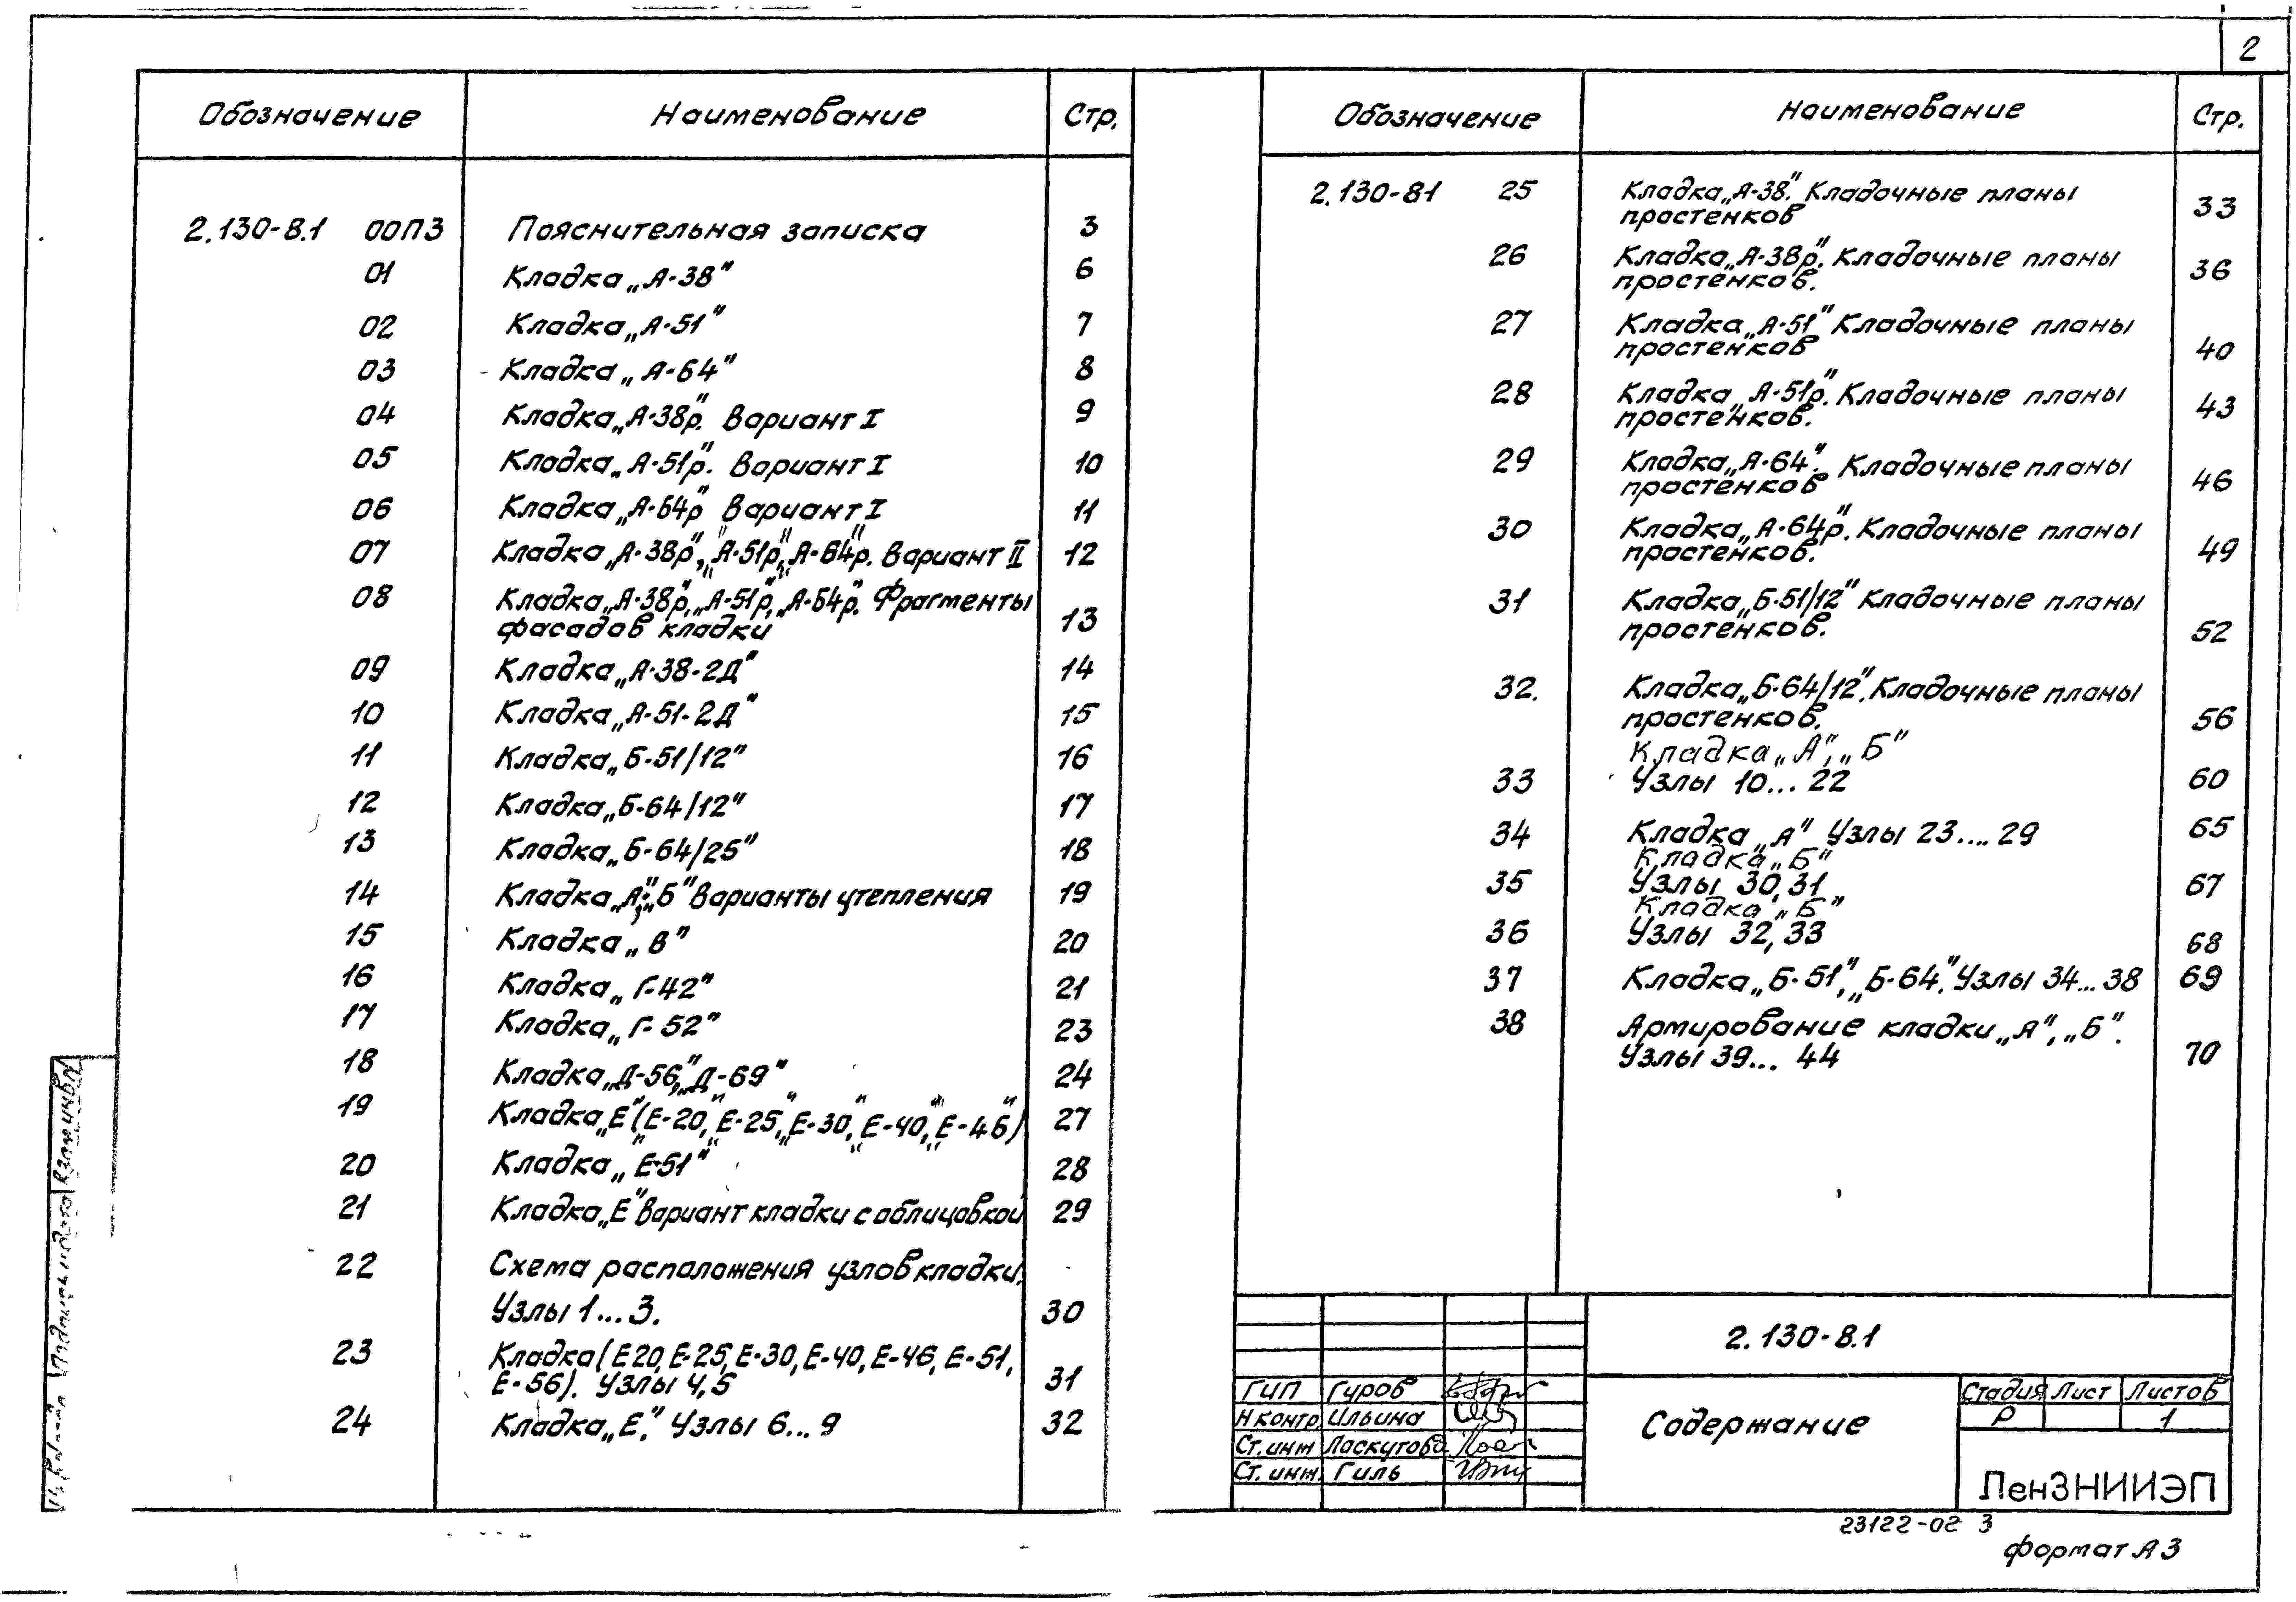 2
Обозначение Наименование Стр.
2.130-8.1 00ПЗ Пояснительная записка 3
01 Кладка „А-38" 6
02 Кладка „А-51" 7
03 Кладка „А-64" 8
04 Кладка „А-38р". Вариант I 9
05 Кладка „А-51р". Вариант I 10
06 Кладка „А-64р" Вариант I 11
07 Кладка „А-38р", „А-51р", „А-64р". Вариант II 12
08 Кладка „А-38р", „А-51р", „А-64р". Фрагменты
фасадов кладки 13
09 Кладка „А-38-2Д" 14
10 Кладка „А-51-2Д" 15
11 Кладка „Б-51/12" 16
12 Кладка „Б-64/12" 17
13 Кладка „Б-64/25" 18
14 Кладка „А", „Б" Варианты утепления 19
15 Кладка „В" 20
16 Кладка „Г-42" 21
17 Кладка „Г-52" 23
18 Кладка „Д-56", „Д-69" 24
19 Кладка „Е" („Е-20", „Е-25", „Е-30", „Е-40", „Е-46") 27
20 Кладка „Е-51" 28
21 Кладка „Е" Вариант кладки с облицовкой 29
22 Схема расположения узлов кладки.
Узлы 1...3. 30
23 Кладка (Е20, Е-25, Е-30, Е-40, Е-46, Е-51,
Е-56). Узлы 4,5 31
24 Кладка „Е". Узлы 6...9 32
Обозначение Наименование Стр.
2.130-81 25 Кладка „А-38". Кладочные планы
простенков 33
26 Кладка „А-38р". Кладочные планы
простенков. 36
27 Кладка „А-51" Кладочные планы
простенков 40
28 Кладка „А-51р". Кладочные планы
простенков. 43
29 Кладка „А-64". Кладочные планы
простенков 46
30 Кладка „А-64р". Кладочные планы
простенков. 49
31 Кладка „Б-51/12" Кладочные планы
простенков. 52
32. Кладка „Б-64/12". Кладочные планы
простенков. 56
Кладка „А", „Б"
33 Узлы 10...22 60
34 Кладка „А" Узлы 23....29 65
Кладка „Б"
35 Узлы 30,31 67
Кладка „Б"
36 Узлы 32,33 68
37 Кладка „Б-51", „Б-64". Узлы 34...38 69
38 Армирование кладки „А", „Б".
Узлы 39...44 70
2.130-8.1
ГИП Гуров
Н контр. Ильина
Ст. инж Лоскутова
Ст. инж. Гиль
Содержание
Стадия Лист Листов
Р 1
ЛенЗНИИЭП
23122-02 3
формат А3